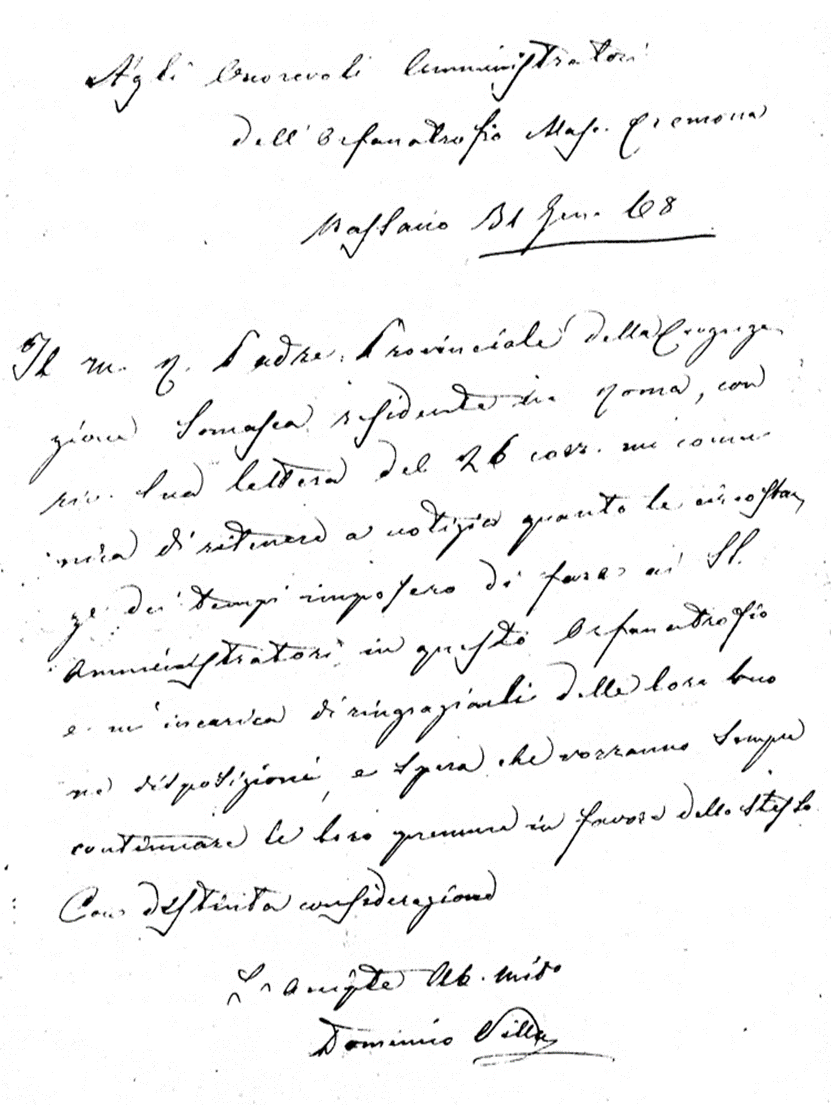 Agli Onorevoli Amministratori
dell'Orfanotrofio Masc. Cremona
Bassano 31 Gen. 68
Il m. R. Padre Provinciale della Congrega
zione Somasca residente in Roma, con
riv. Sua lettera del 26 corr. mi comu
nica di ritenere a notizia quanto le circostan
ze dei tempi imposero di fare ai SS.
Amministratori in questo Orfanotrofio
e m'incarica di ringraziarli delle loro buo
ne disposizioni, e spera che vorranno sempre
continuare le loro premure in favore dello stesso
Con distinta considerazione
Domenico Villa